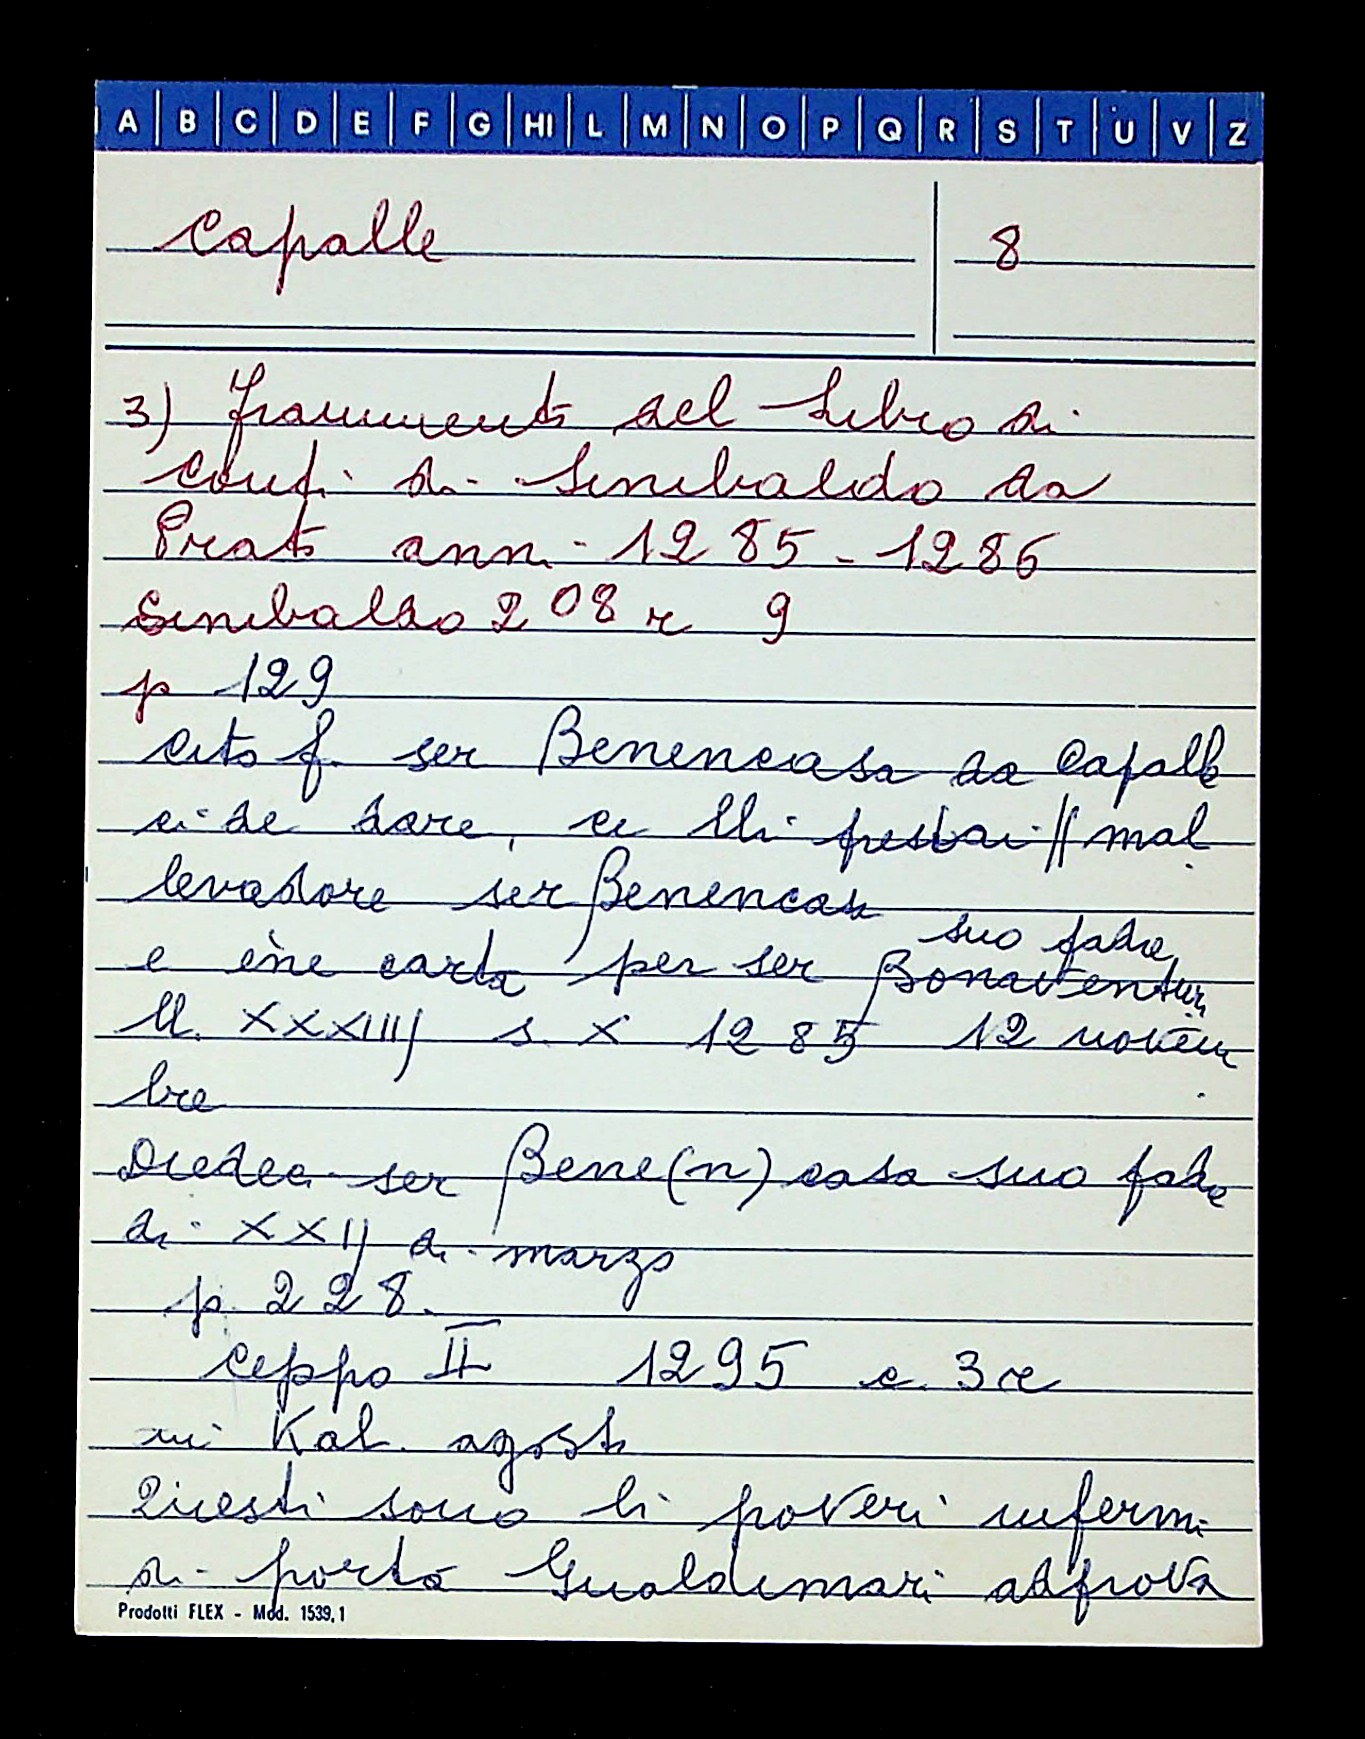 A B C D E F G HI L M N O P Q R S T U V Z
Capalle 8
3) frammento del Libro di
conti di Sinibaldo da
Prato ann. 1285-1286
Sinibaldo 208 r 9
p 129
cito f. ser Benencasa da Capalle
ci de dare, ci lli prestai // mal
levadore ser Benencasa suo padre
e ène carta per ser Bonaventura
ll. XXXIIIJ s. X 1285 12 novem
bre
Diedeci ser Bene(n)casa suo padre
di XXIJ di marzo
p. 228.
Ceppo II 1295 c. 3 r
Kal. agosto
Questi sono li poveri infermi
di porta Gualdimari
Prodotti FLEX - Mod. 1539,1